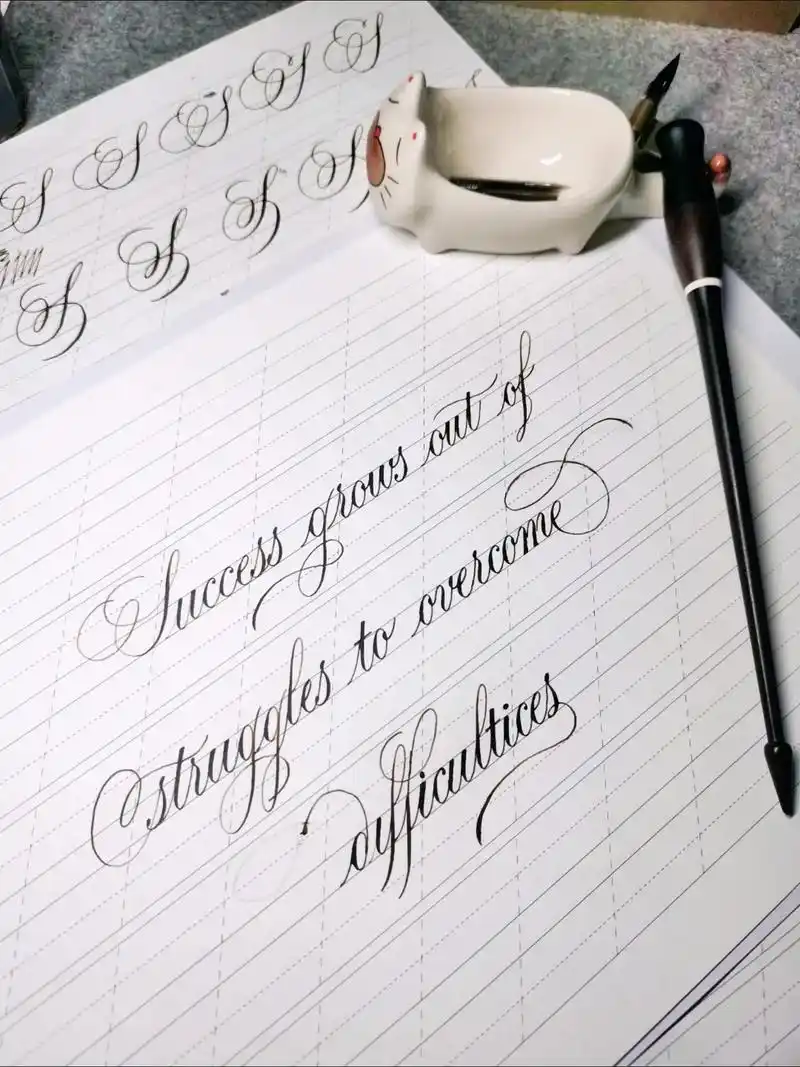 S S S S S
S S S S
Success grows out of
struggles to overcome
difficultices